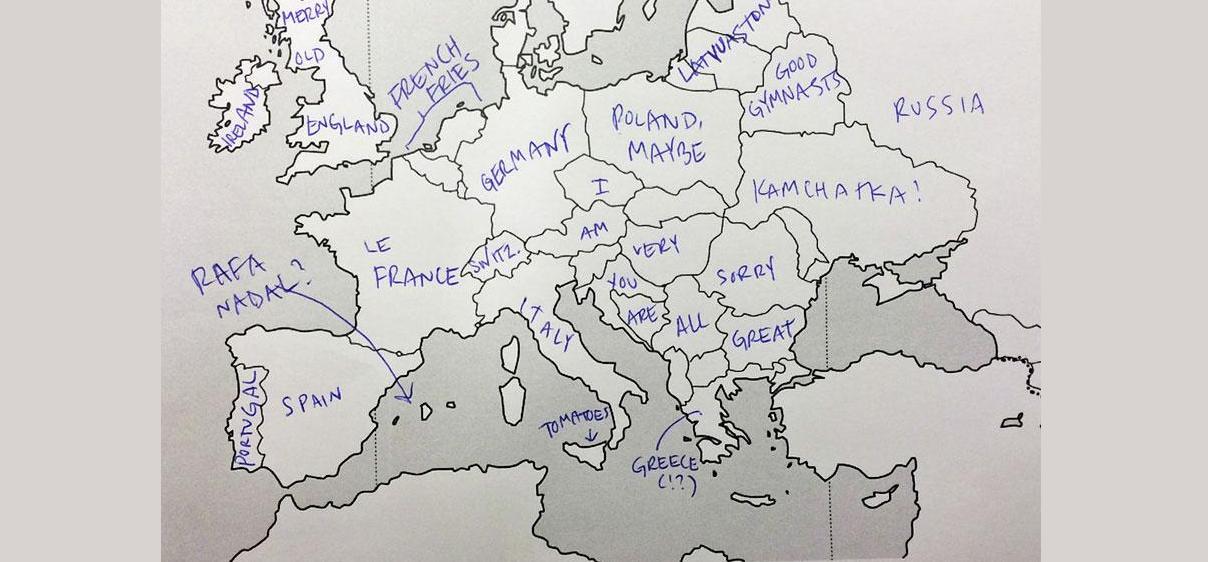 MERRY
OLD
ENGLAND
IRELAND
FRENCH
FRIES
LATVUASTON
GOOD
GYMNASTS
RUSSIA
GERMANY
POLAND,
MAYBE
KAMCHATKA!
I
AM
VERY
SORRY
LE
FRANCE
SWITZ.
YOU
ARE
ALL
GREAT
RAFA
NADAL?
ITALY
PORTUGAL
SPAIN
TOMATOES
GREECE
(!?)